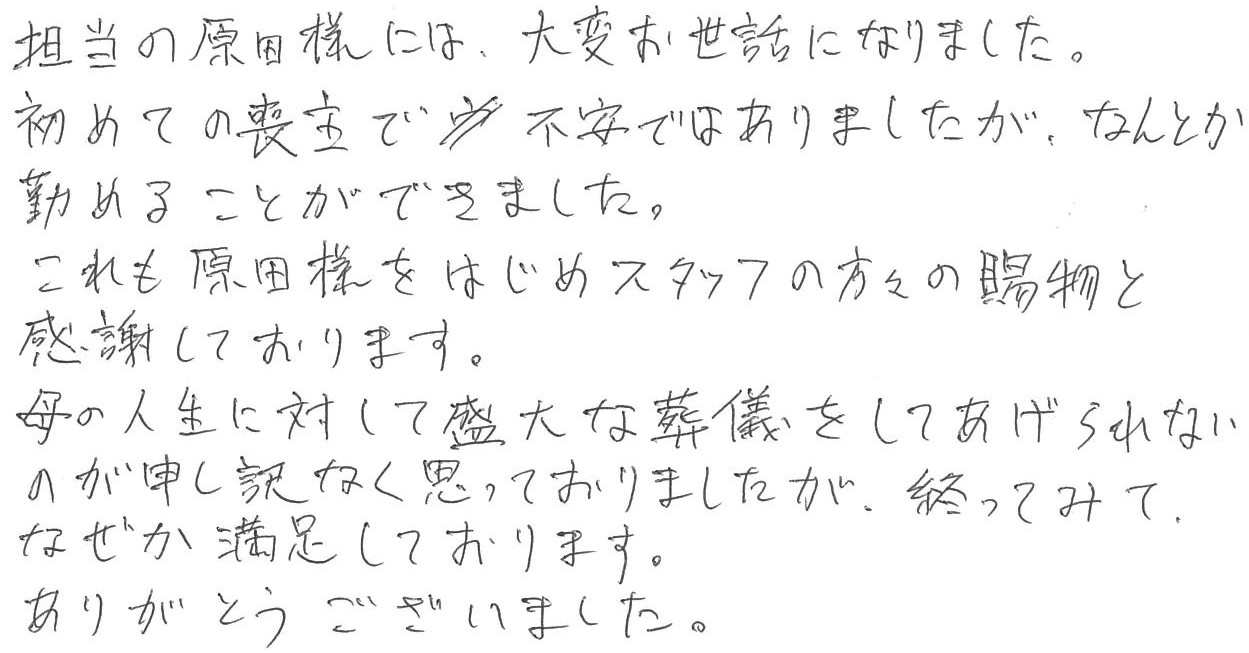 担当の原田様には、大変お世話になりました。
初めての喪主で不安ではありましたが、なんとか
勤めることができました。
これも原田様をはじめスタッフの方々の賜物と
感謝しております。
母の人生に対して盛大な葬儀をしてあげられない
のが申し訳なく思っておりましたが、終ってみて、
なぜか満足しております。
ありがとうございました。